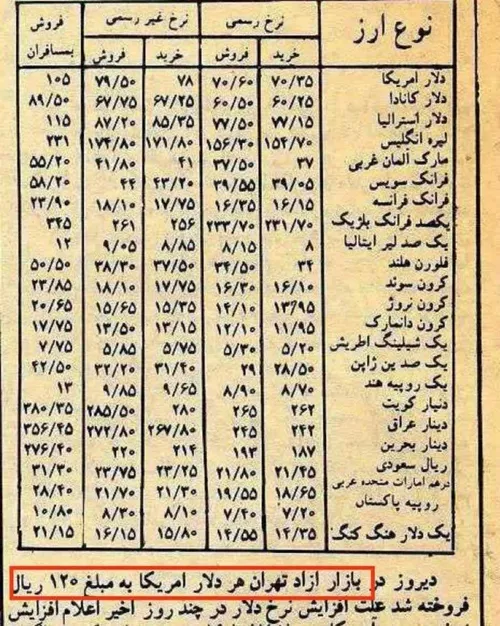 نوع ارز نرخ رسمی نرخ غیر رسمی فروش بمسافران
خرید فروش خرید فروش
دلار امریکا ۷۰/۳۵ ۷۰/۶۰ ۷۸ ۷۹/۵۰ ۱۰۵
دلار کانادا ۶۰/۲۵ ۶۰/۵۰ ۶۷/۲۵ ۶۷/۷۵ ۸۹/۵۰
دلار استرالیا ۷۷/۱۵ ۷۷/۵۰ ۸۵/۳۵ ۸۷/۲۰ ۱۱۵
لیره انگلیس ۱۵۴/۷۰ ۱۵۶/۳۰ ۱۷۱/۸۰ ۱۷۴/۸۰ ۲۳۱
مارک آلمان غربی ۳۷ ۳۷/۵۰ ۴۱ ۴۱/۸۰ ۵۵/۲۰
فرانک سویس ۳۹/۰۵ ۳۹/۵۵ ۴۳/۲۰ ۴۴ ۵۸/۲۰
فرانک فرانسه ۱۶/۱۵ ۱۶/۳۵ ۱۷/۷۵ ۱۸/۱۰ ۲۳/۹۰
یکصد فرانک بلژیک ۲۳۱/۷۰ ۲۳۳/۷۰ ۲۵۶ ۲۶۱ ۳۴۵
یک صد لیر ایتالیا ۸ ۸/۱۵ ۸/۸۵ ۹/۰۵ ۱۲
فلورن هلند ۳۴ ۳۴/۵۰ ۳۷/۵۰ ۳۸/۳۰ ۵۰/۵۰
کرون سوئد ۱۶/۱۰ ۱۶/۳۰ ۱۷/۷۵ ۱۸/۱۰ ۲۳/۸۵
کرون نروژ ۱۳/۹۵ ۱۴/۱۰ ۱۵/۳۵ ۱۵/۶۵ ۲۰/۶۵
کرون دانمارک ۱۱/۹۵ ۱۲/۱۰ ۱۳/۱۵ ۱۳/۵۰ ۱۷/۷۵
یک شیلینگ اطریش ۵/۲۰ ۵/۳۰ ۵/۷۵ ۵/۸۵ ۷/۷۵
یک صد ین ژاپن ۲۸/۵۰ ۲۹ ۳۱/۴۰ ۳۲/۲۰ ۴۲/۵۰
یک روپیه هند ۸/۷۰ ۸/۹۰ ۹/۶۵ ۹/۸۵ ۱۳
دنیار کویت ۲۶۲ ۲۶۵ ۲۸۰ ۲۸۵/۵۰ ۳۸۰/۳۵
دینار عراق ۲۴۲ ۲۴۵ ۲۶۷/۸۰ ۲۷۲/۸۰ ۳۵۶/۴۵
دینار بحرین ۱۸۷ ۱۹۳ ۲۱۴ ۲۲۰ ۲۷۶/۴۰
ریال سعودی ۲۱/۴۵ ۲۱/۸۰ ۲۳/۲۵ ۲۳/۷۵ ۳۱/۳۰
درهم امارات متحده عربی ۱۸/۶۵ ۱۹/۵۵ ۲۱/۳۰ ۲۱/۷۰ ۲۸/۴۰
روپیه پاکستان ۷/۲۰ ۷/۴۰ ۸/۱۰ ۸/۳۰ ۱۰/۸۰
یک دلار هنگ کنگ ۱۴/۳۵ ۱۴/۵۵ ۱۵/۸۰ ۱۶/۱۵ ۲۱/۱۵
دیروز در بازار ازاد تهران هر دلار امریکا به مبلغ ۱۲۰ ریال
فروخته شد علت افزایش نرخ دلار در چند روز اخیر اعلام افزایش